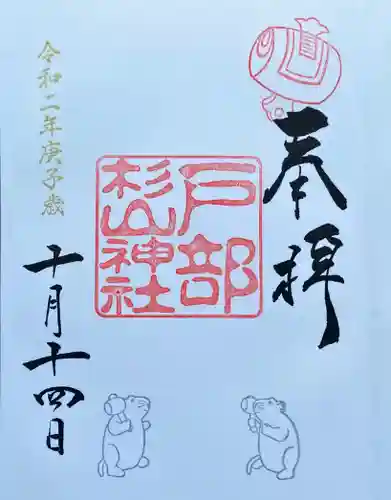 奉拝
戸部
杉山神社
令和二年庚子歳
十月十四日